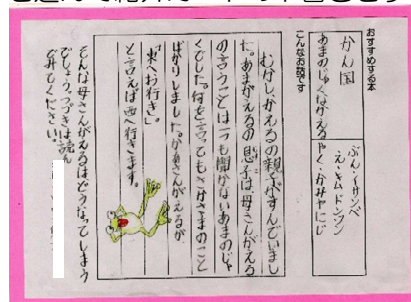 おすすめする本
かん国
あまのじゃくなかえる
ぶん・イサンベ
え・キムドンソン
やく・かみやにじ
こんなお話です
むかし、かえるの親子がすんでいまし
た。あまがえるの息子は、母さんがえる
の言うことは一つも聞かないあまのじゃ
くでした。何を言ってもさかさまのこと
ばかりしました。かあさんがえるが
「東へお行き」。
と言えば西へ行きます。
そんな母さんがえるはどうなってしまう
でしょう。つづきは読ん
でみてください。